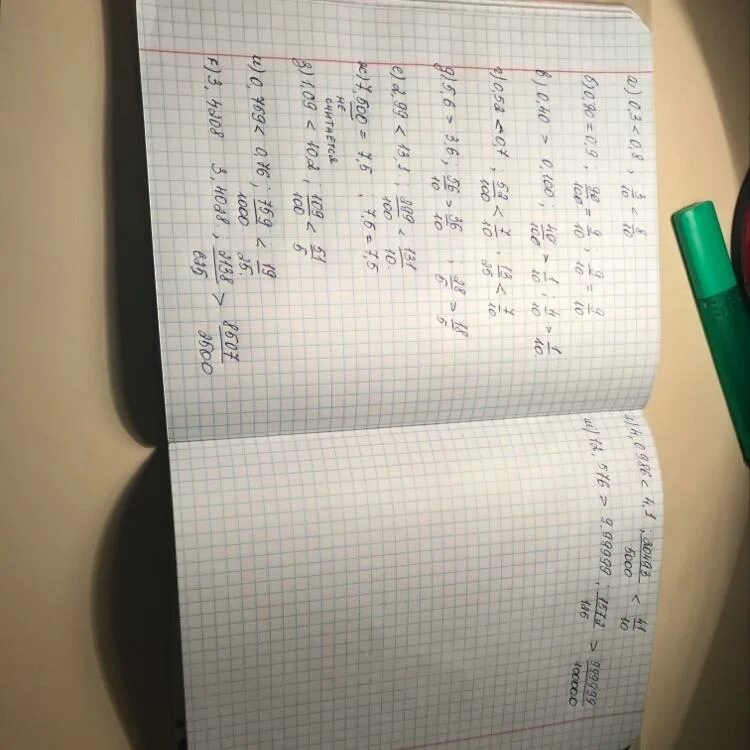 а) 0,3 < 0,8 ; 3/10 < 8/10
б) 0,90 = 0,9 ; 90/100 = 9/10 ; 9/10 = 9/10
в) 0,40 > 0,100 ; 40/100 > 1/10 ; 4/10 > 1/10.
г) 0,52 < 0,7 ; 52/100 < 7/10 ; 13/25 < 7/10
д) 5,6 > 3,6 ; 56/10 > 36/10 ; 28/5 > 18/5
е) 2,99 < 13,1 ; 299/100 < 131/10.
ж) 7,500 = 7,5 ; 7,5 = 7,5
не
считается
з) 1,09 < 10,2 ; 109/100 < 51/5
и) 0,759 < 0,76 ; 759/1000 < 19/25.
к) 3,4208 3,4028 ; 2138/625 > 8507/2500
л) 4,0986 < 4,1 ; 20493/5000 < 41/10
м) 12,576 > 9,99999 ; 1572/125 > 999999/100000